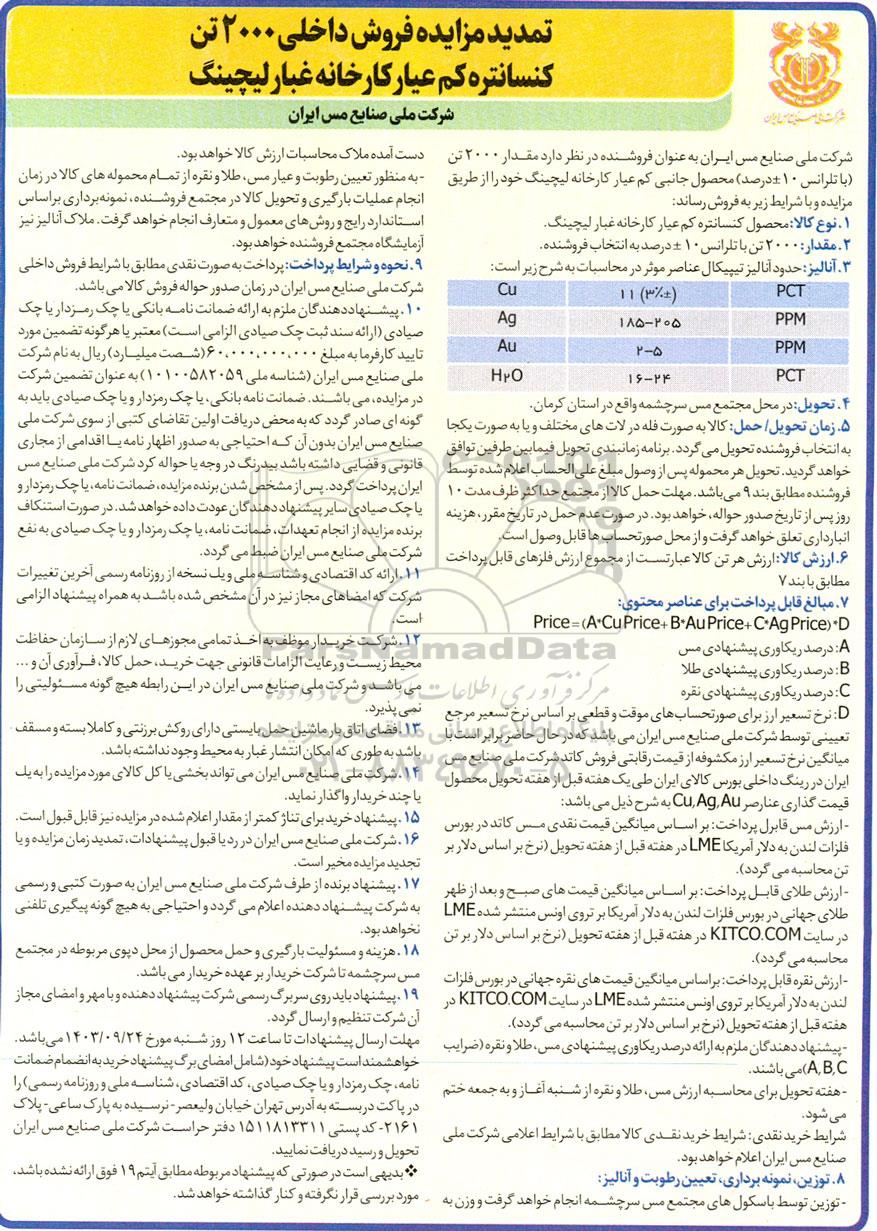 تمدید مزایده فروش داخلی ۲۰۰۰ تن
کنسانتره کم عیار کارخانه غبار لیچینگ
شرکت ملی صنایع مس ایران
شرکت ملی صنایع مس ایران
شرکت ملی صنایع مس ایـران به عنوان فروشـنده در نظر دارد مقـدار ۲۰۰۰ تن
(با تلرانس ۱۰±درصد) محصول جانبی کم عیار کارخانه لیچینگ خود را از طریق
مزایده و با شرایط زیر به فروش رساند:
۱. نوع کالا: محصول کنسانتره کم عیار کارخانه غبار لیچینگ.
۲. مقدار: ۲۰۰۰ تن با تلرانس ۱۰ ± درصد به انتخاب فروشنده.
۳. آنالیز: حدود آنالیز تیپیکال عناصر موثر در محاسبات به شرح زیر است:
Cu ۱۱ (±۳٪) PCT
Ag ۱۸۵-۲۰۵ PPM
Au ۲-۵ PPM
H۲O ۱۶-۲۴ PCT
۴. تحویل: در محل مجتمع مس سرچشمه واقع در استان کرمان.
۵. زمان تحویل/ حمل: کالا به صورت فله در لات های مختلف و یا به صورت یکجا
به انتخاب فروشنده تحویل می گردد. برنامه زمانبندی تحویل فیمابین طرفین توافق
خواهد گردید. تحویل هر محموله پس از وصول مبلغ علی الحساب اعلام شده توسط
فروشنده مطابق بند ۹ می باشد. مهلت حمل کالا از مجتمع حداکثر ظرف مدت ۱۰
روز پس از تاریخ صدور حواله، خواهد بود. در صورت عدم حمل در تاریخ مقرر، هزینه
انبارداری تعلق خواهد گرفت و از محل صورتحساب ها قابل وصول است.
۶. ارزش کالا: ارزش هر تن کالا عبارتست از مجموع ارزش فلزهای قابل پرداخت
مطابق با بند ۷
۷. مبالغ قابل پرداخت برای عناصر محتوی:
Price=(A*Cu Price+ B*Au Price+ C*Ag Price) *D
A: درصد ریکاوری پیشنهادی مس
B: درصد ریکاوری پیشنهادی طلا
C: درصد ریکاوری پیشنهادی نقره
D: نرخ تسعیر ارز برای صورتحساب های موقت و قطعی بر اساس نرخ تسعیر مرجع
تعیینی توسط شرکت ملی صنایع مس ایران می باشد که در حال حاضر برابر است با
میانگین نرخ تسعیر ارز مکشوفه از قیمت رقابتی فروش کاتد شرکت ملی صنایع مس
ایران در رینگ داخلی بورس کالای ایران طی یک هفته قبل از هفته تحویل محصول
قیمت گذاری عنارصر Cu,Ag,Au به شرح ذیل می باشد:
-ارزش مس قابرل پرداخت: بر اسـاس میانگین قیمت نقدی مـس کاتد در بورس
فلزات لندن به دلار آمریکا LME در هفته قبل از هفته تحویل (نرخ بر اساس دلار بر
تن محاسبه می گردد).
-ارزش طلای قابـل پرداخت: بر اساس میانگین قیمت های صبـح و بعد از ظهر
طلای جهانی در بورس فلزات لندن به دلار آمریکا بر تروی اونس منتشر شده LME
در سایت KITCO.COM در هفته قبل از هفته تحویل (نرخ بر اساس دلار بر تن
محاسبه می گردد).
-ارزش نقره قابل پرداخت: براساس میانگین قیمت های نقره جهانی در بورس فلزات
لندن به دلار آمریکا بر تروی اونس منتشر شده LME در سایت KITCO.COM در
هفته قبل از هفته تحویل (نرخ بر اساس دلار بر تن محاسبه می گردد).
-پیشنهاد دهندگان ملزم به ارائه درصد ریکاوری پیشنهادی مس، طلا و نقره (ضرایب
A,B,C)می باشند.
-هفته تحویل برای محاسبه ارزش مس، طلا و نقره از شـنبه آغـاز و به جمعه ختم
می شود.
شرایط خرید نقدی: شرایط خرید نقـدی کالا مطابق با شرایط اعلامی شرکت ملی
صنایع مس ایران اعلام خواهد بود.
۸. توزین، نمونه برداری، تعیین رطوبت و آنالیز:
-توزین توسط باسکول های مجتمع مس سرچشـمه انجام خواهد گرفت و وزن به
دست آمده ملاک محاسبات ارزش کالا خواهد بود.
-به منظور تعیین رطوبت و عیار مس، طلا و نقره از تمـام محموله های کالا در زمان
انجام عملیات بارگیری و تحویل کالا در مجتمع فروشـنده، نمونه برداری براساس
استاندارد رایج و روش های معمول و متعارف انجام خواهد گرفت. ملاک آنالیز نیز
آزمایشگاه مجتمع فروشنده خواهد بود.
۹. نحوه و شرایط پرداخت: پرداخت به صورت نقدی مطابق با شرایط فروش داخلی
شرکت ملی صنایع مس ایران در زمان صدور حواله فروش کالا می باشد.
۱۰. پیشنهاددهندگان ملزم به ارائه ضمانت نامـه بانکی یا چک رمـزدار یا چک
صیادی (ارائه سند ثبت چک صیادی الزامی است) معتبر یا هرگونه تضمین مورد
تایید کارفرما به مبلغ ۶۰,۰۰۰,۰۰۰,۰۰۰(شـصت میلیـارد) ریال به نام شرکت
ملی صنایع مس ایران (شناسه ملی ۱۰۱۰۰۵۸۲۰۵۹) به عنوان تضمین شرکت
در مزایده، می باشند. ضمانت نامه بانکی، یا چک رمزدار و یا چک صیادی باید به
گونه ای صادر گردد که به محض دریافت اولین تقاضای کتبی از سوی شرکت ملی
صنایع مس ایران بدون آن کـه احتیاجی به صدور اظهار نامه یـا اقدامی از مجاری
قانونی و قضایی داشته باشد بیدرنگ در وجه یا حواله کرد شرکت ملی صنایع مس
ایران پرداخت گردد. پس از مشخص شدن برنده مزایده، ضمانت نامه، یا چک رمزدار و
یا چک صیادی سایر پیشنهاد دهندگان عودت داده خواهد شد. در صورت استنکاف
برنده مزایده از انجام تعهدات، ضمانت نامه، یا چک رمزدار و یا چک صیادی به نفع
شرکت ملی صنایع مس ایران ضبط می گردد.
۱۱. ارائه کد اقتصادی و شناسه ملی و یک نسخه از روزنامه رسمی آخرین تغییرات
شرکت که امضاهای مجاز نیز در آن مشخص شده باشـد به همراه پیشنهاد الزامی
است.
۱۲. شرکت خریـدار موظف به اخـذ تمامی مجوزهـای لازم از سـازمان حفاظت
محیط زیست و رعایت الزامات قانونی جهت خریـد، حمل کالا، فـرآوری آن و ...
می باشـد و شرکت ملی صنایع مس ایران در ایـن رابطه هیچ گونه مسئولیتی را
نمی پذیرد.
۱۳. فضای اتاق بار ماشین حمل بایستی دارای روکش برزنتی و کاملا بسته و مسقف
باشد به طوری که امکان انتشار غبار به محیط وجود نداشته باشد.
۱۴. شرکت ملی صنایع مس ایران می تواند بخشی یا کل کالای مورد مزایده را به یک
یا چند خریدار واگذار نماید.
۱۵. پیشنهاد خرید برای تناژ کمتر از مقدار اعلام شده در مزایده نیز قابل قبول است.
۱۶. شرکت ملی صنایع مس ایران در رد یا قبول پیشنهادات، تمدید زمان مزایده و یا
تجدید مزایده مخیر است.
۱۷. پیشنهاد برنده از طرف شرکت ملی صنایع مس ایران به صورت کتبی و رسمی
به شرکت پیشـنهاد دهنده اعلام می گردد و احتیاجی به هیچ گونه پیگیری تلفنی
نخواهد بود.
۱۸. هزینه و مسئولیت بارگیری و حمل محصول از محل دپوی مربوطه در مجتمع
مس سرچشمه تا شرکت خریدار بر عهده خریدار می باشد.
۱۹. پیشنهاد باید روی سربرگ رسمی شرکت پیشنهاد دهنده و با مهر و امضای مجاز
آن شرکت تنظیم و ارسال گردد.
مهلت ارسال پیشنهادات تا ساعت ۱۲ روز شـنبه مورخ ۱۴۰۳/۰۹/۲۴ می باشد.
خواهشمند است پیشنهاد خود (شامل امضای برگ پیشنهاد خرید به انضمام ضمانت
نامه، چک رمزدار و یا چک صیادی، کد اقتصادی، شناسـه ملی و روزنامه رسمی) را
در پاکت دربسته به آدرس تهران خیابان ولیعصر- نرسیده به پارک ساعی- پلاک
۲۱۶۱- کد پستی ۱۵۱۱۸۱۳۳۱۱ دفتر حراست شرکت ملی صنایع مس ایران
تحویل و رسید دریافت نمایید.
❖بدیهی است در صورتی که پیشنهاد مربوطه مطابق آیتم ۱۹ فوق ارائه نشده باشد،
مورد بررسی قرار نگرفته و کنار گذاشته خواهد شد.
ParsNamadData
مرکز فرآوری اطلاعات پارس نماد داده ها
۰۲۱-۸۸۳۴۹۶۷۰-۵